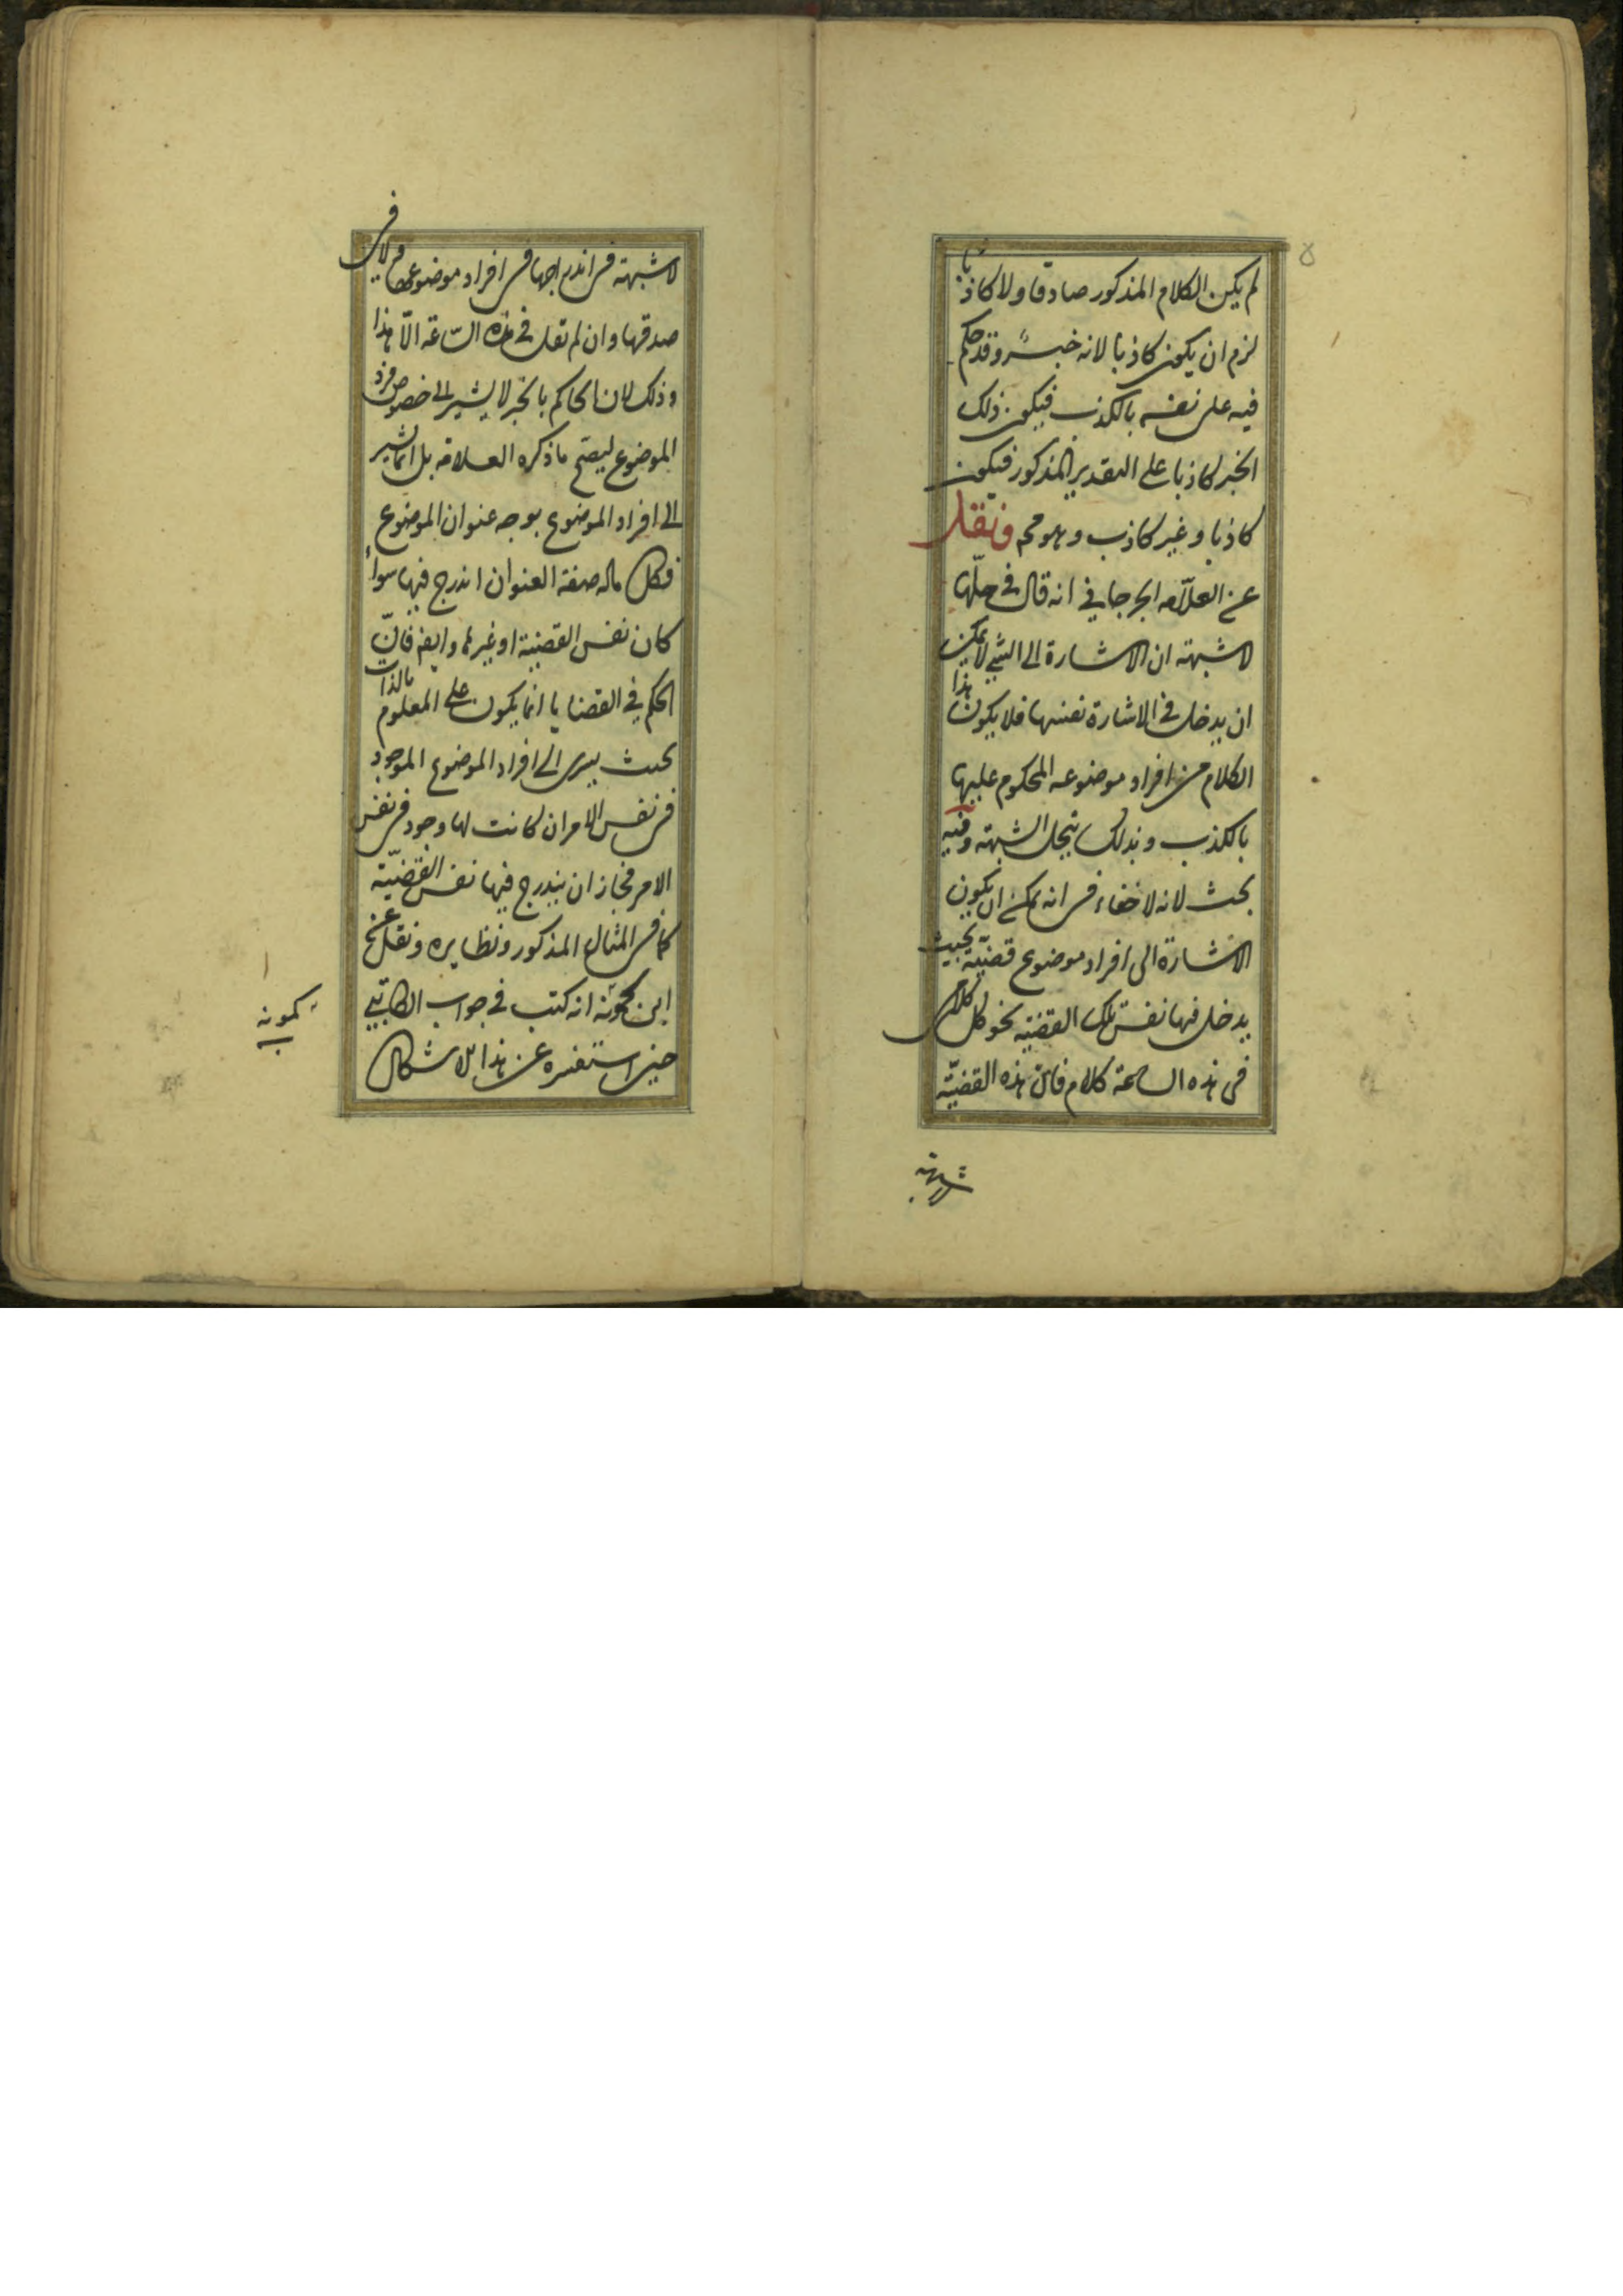 لم يكن الكلام المذكور صادقا ولا كاذبا
لزم ان يكون كاذبا لانه خبر وقد حكم
فيه على نفسه بالكذب فيكون ذلك
الخبر كاذبا على التقدير المذكور فيكون
كاذبا وغير كاذب وهو مح ونقل
عن العلّامه الجرجاني انه قال في حلّها
لا شبهته ان الاشارة الى الشيء لا يمكن
ان يدخل في الاشارة نفسها فلا يكون هذا
الكلام من افراد موضوعه المحكوم عليها
بالكذب وبذلك ينحل الشبهته وفيه
بحث لانه لا خفاء في انه يمكن ان يكون
الاشارة الى افراد موضوع قضيّة بحيث
يدخل فيها نفس تلك القضيّة نحو كل كلامي
في هذه الساعة كلام فان هذه القضيّة
لا شبهته
لا شبهته في اندراجها في افراد موضوعها ولا في
صدقها وان لم تقل في هذه السّاعة الّا هذا
وذلك لان الحاكم بالخبر لا يشير الى خصوص فرد
الموضوع ليصح ما ذكره العلامه بل انما يشير
الى افراد الموضوع بوجه عنوان الموضوع
فكل ماله صفة العنوان اندرج فيها سواء
كان نفس القضية او غيرها وايضا فانّ
الحكم في القضايا انما يكون على المعلوم بالذات
بحيث يسرى الى افراد الموضوع الموجود
في نفس الامر ان كانت لها وجود في نفس
الامر فجاز ان يندرج فيها نفس القضيّة
كما في المثال المذكور ونظايره ونقل عن
ابن كمونه انه كتب في جواب الكاتبي
حين استفسره عن هذا الاشكال
كمونه